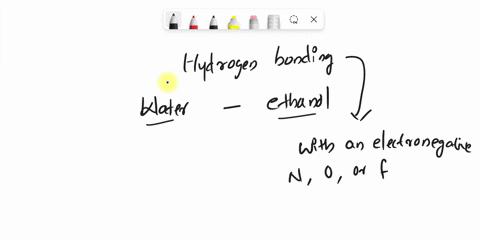 Hydrogen bonding
Water - ethanol
With an electronegative
N, O, or f